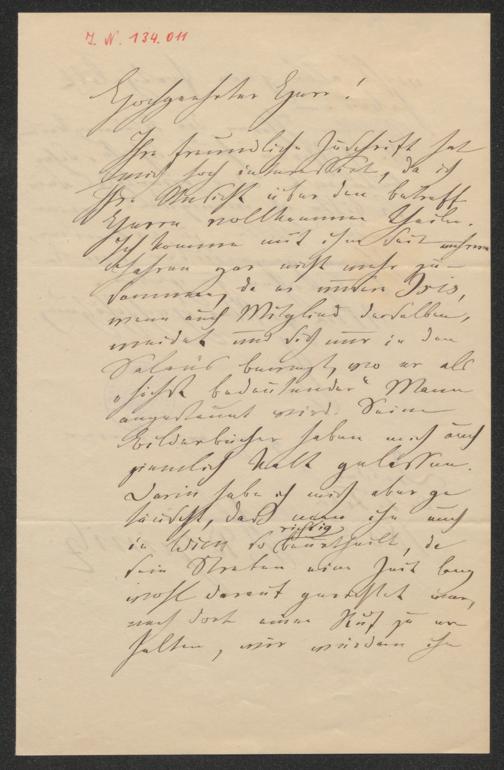 J. N. 134.011
Hochgeehrter Herr!
Ihre freundliche Zuschrift hat
mich hoch interessirt, da ich
Ihre Ansicht über den betreff.
Herrn vollkommen theile.
Ich komme mit ihm seit mehreren
Jahren gar nicht mehr zu-
sammen, da er unsere Iris,
wenn auch Mitglied derselben,
meidet und sich nur in den
Salons bewegt, wo er als
"höchst bedeutender" Mann
angestaunt wird. Seine
Bilderbücher haben mich auch
ziemlich kalt gelassen.
Darin habe ich mich aber ge-
täuscht, daß man ihn auch
in Wien so richtig beurtheilt, da
sein Streben eine Zeit lang
wohl darauf gerichtet war,
nach dort einen Ruf zu er-
halten, wir würden ihn